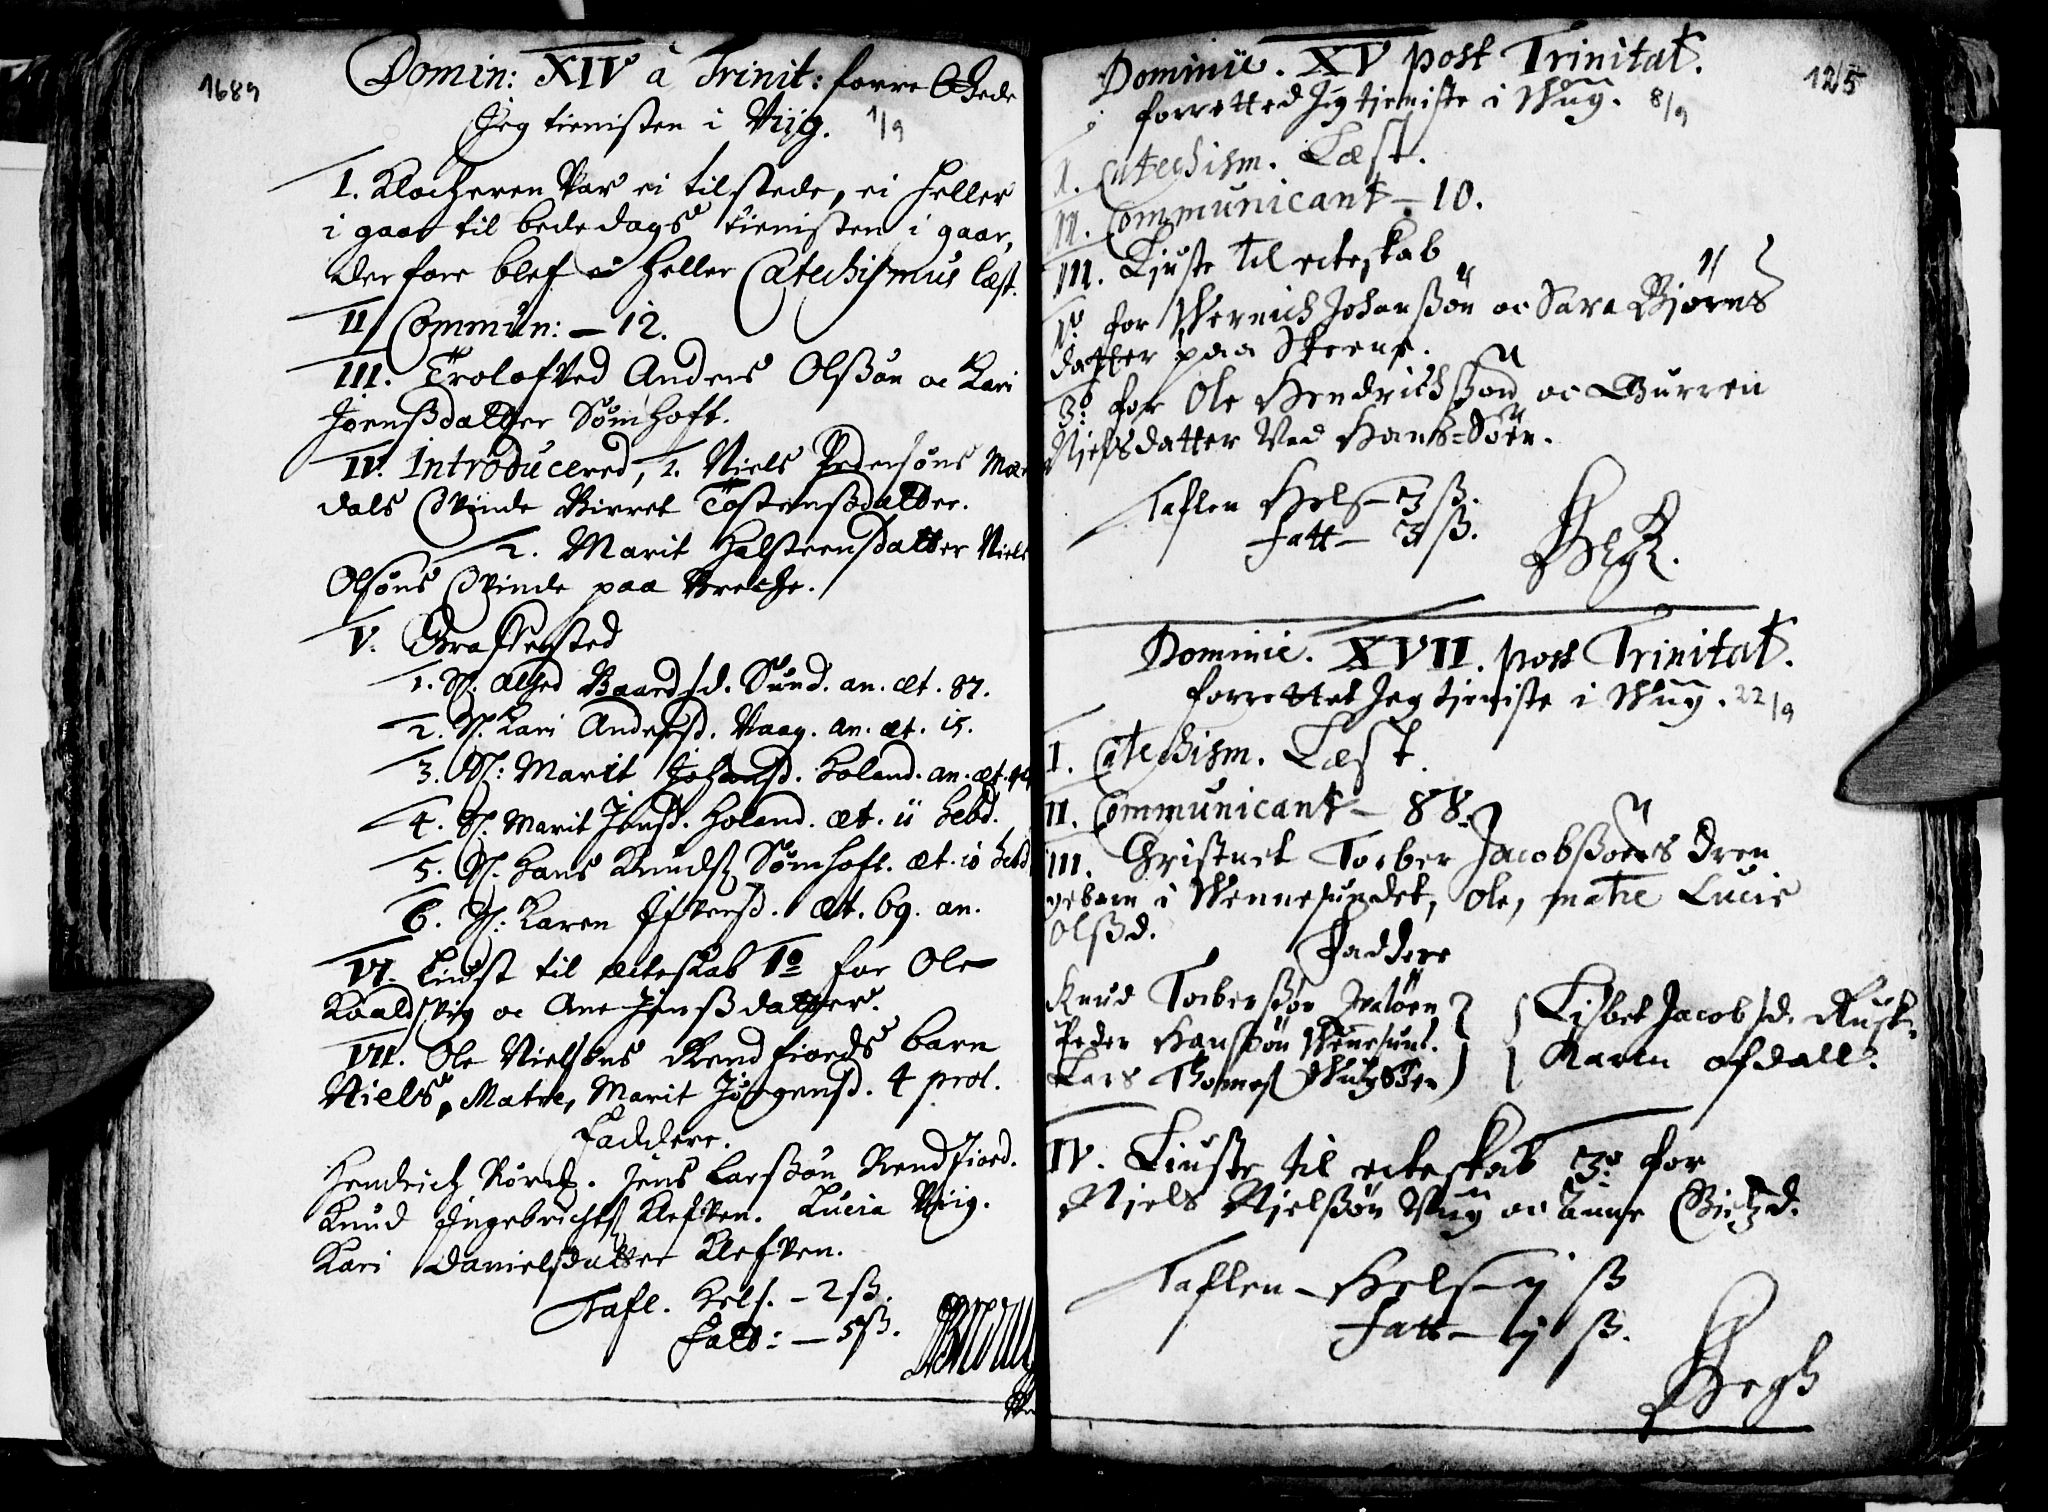 1689
Domin: XIV à Trinit: forre
Jeg tienisten i Viig. 1/9
I. Klocheren var ei tilstede, ei heller
i gaar til bededags tienisten i gaar,
derfore blef ei heller Catechismus læst.
II Commun: – 12.
III. Trolofved Anders Olßøn oc Kari
Jensßdatter Sømhoft.
IV. Introducered, 1. Niels Pedersøns
dals Qvinde Birret Tostensßdatter.
2. Marit Halsteensdatter Niels
Olsøns Qvinde paa
V. Graffested
1. S. Baardsd. Sund. an. æt. 87.
2. S. Kari Andersd. Vaag. an. æt. 15.
3. S: Marit Johansd. Holand. an. æt.
4. S. Marit Jonsd. Holand. æt. 11 hebd.
5. S. Hans Knuds. Sømhoft. æt. 10 hebd
6. S: Karen Ifversd. æt. 69. an.
VI. Liust til ecteskab 1º for Ole
Kvaldsvig oc Ane Jensßdatter.
VII. Ole Nielsøns Rendfiords barn
Niels, Matre, Marit Jørgensd. 4 prol.
Faddere.
Hendrich Jens Larsßøn Rendfiord.
Knud Ingebrichts. Klefven. Lucia Viig.
Kari Danielsdatter Klefven.
Tafl. Hels. – 2 ß.
Fatt: – 5 ß.
125
Dominic. XV post Trinitat.
forretted Jeg tjeniste i Wiig. 8/9
I. Catechism. Læst.
II. Communicant – 10.
III. Liuste til ecteskab
1º for Wernich Johanßøn oc Sara Bjørns
datter paa Steene.
3º for Ole Hendrichßøn oc Gurren
Njelsdatter Ved
Taflen Hels – 3 ß.
Fatt – 3 ß.
Dominic. XVII. post Trinitat.
forrettet Jeg tjeniste i Wiig. 22/9
I. Catechism. Læst.
II. Communicant – 88.
III. Christnet Torber Jacobßøns dren
gebarn i Wennesundet, Ole, matre Lucie
Olßd.
Faddere
Knud Torberßøn
Peder Hanßøn Wennesunt.
Lars Thomeß
Lisbet Jacobsd. Rusk.
Karen ofdall.
IV. Liuste til ecteskab 3º for
Njels Njelßøn Wiig oc Anne
Taflen – Hels – ij ß
Fatt – ij ß.